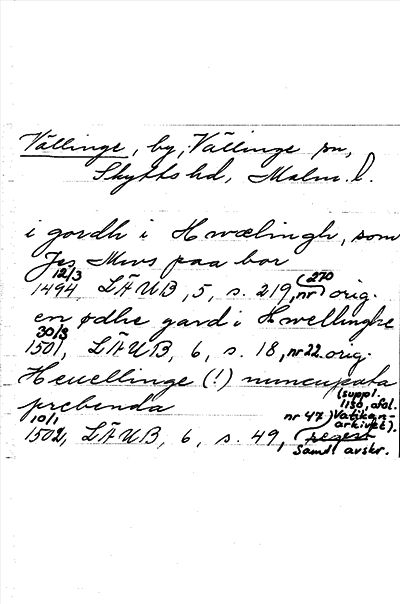 Vällinge, by, Vällinge sn,
Skytts hd, Malm. l.
i gordh i Hwælingh, som
Jes Mws paa bor
12/3 1494, LÄUB, 5, s. 219, nr 270 orig.
en ødhe gard i Hwellinghe
30/3 1501, LÄUB, 6, s. 18, nr 22. orig.
Heuellinge (!) nuncupata
prebenda
10/1 1502, LÄUB, 6, s. 49, nr 47 regest
(suppl.
1130, afol.
Vatikan-
arkivet).
Samt. avskr.